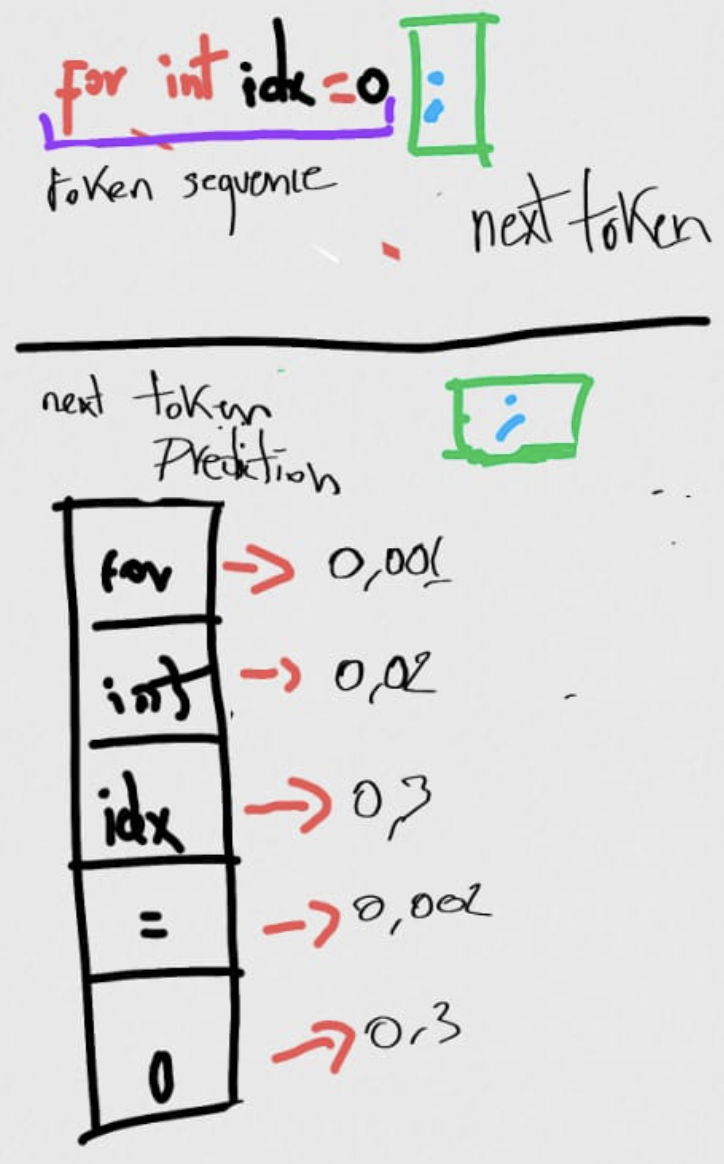 for int idx=0 ;
token sequence
next token
next token
;
Predition
for → 0,001
int → 0,02
idx → 0,3
= → 0,002
0 → 0,3